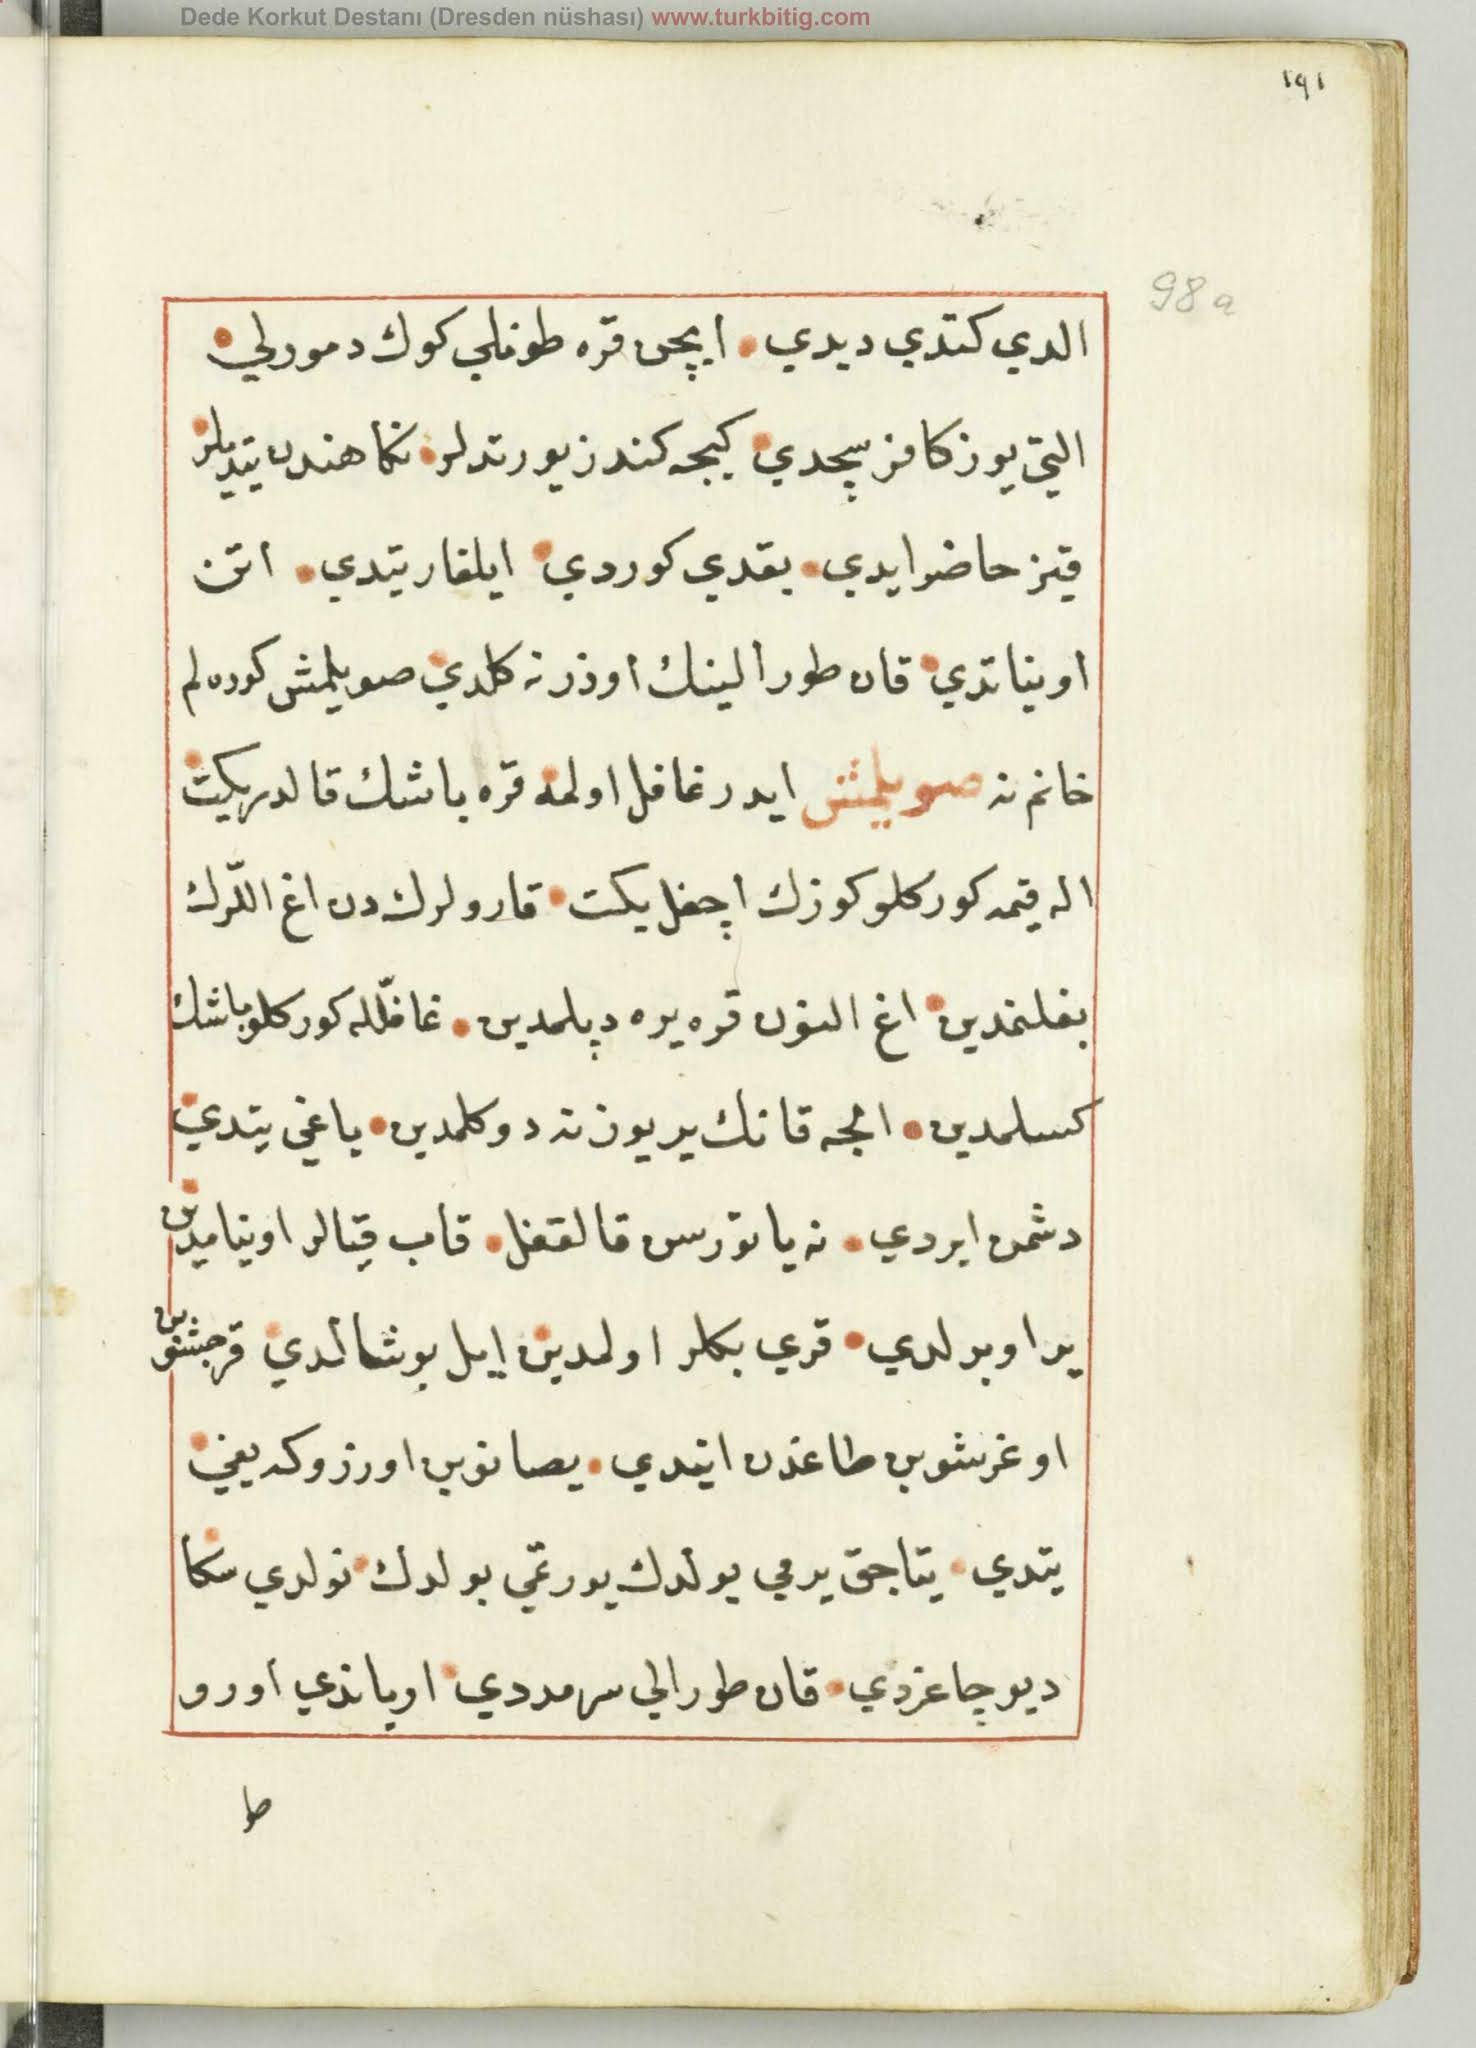 Dede Korkut Destanı (Dresden nüshası) www.turkbitig.com
١٩١
98a
الدي كتدي ديدي • ايچن قره طونلي كوك دمورلي •
التي يوز كافر سچدي • كيجه كندز يورتدلر • نكاهندن يتديلر •
قيز حاضر ايدي • بقدي كوردي • ايلغار يتدي • اتن
اويناتدي • قان طورالينك اوزرنه كلدي صويلمش كوره لم
خانم نه صويلمش ايدر غافل اولمه قره باشك قالدر يكت •
اله قيمه كوركلو كوزك اچغل يكت • قارولرك دن اغ اللرك
بغلنمدين • اغ النون قره يره دپلمدين • غافلله كوركلو باشك
كسلمدين • الجه قانك ير يوزنه دوكلمدين • ياغي يتدي •
دشمن ايردي • نه ياتورسن قالقغل • قاب قيالر اوينامدين •
ير اوبرلدي • قري بكلر اولمدين ايل بوشالدي • قرجشوبن
اوغرشوبن طاغدن ايندي • يصانوبن اورزوكه يغي •
يتدي • يتاجق يرمي بولدك يورتمي بولدك • نولدي سكا •
ديو چاغردي • قان طورالي سرمردي • اوياندي اورو
ط